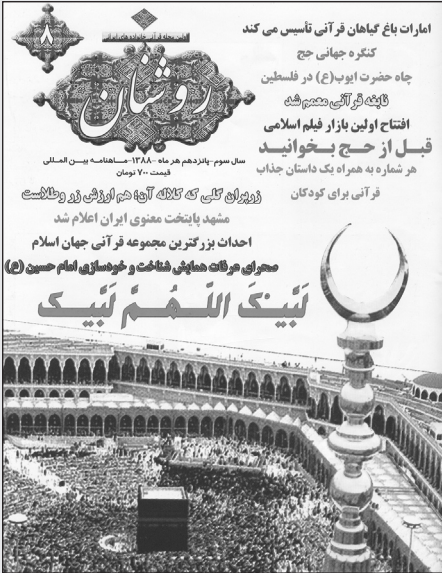 ۸
روشنان
سال سوم-پانزدهم هر ماه -۱۳۸۸-ماهنامه بین المللی
قیمت ۷۰۰ تومان
امارات باغ گیاهان قرآنی تأسیس می کند
کنگره جهانی حج
چاه حضرت ایوب(ع) در فلسطین
نابغه قرآنی معمم شد
افتتاح اولین بازار فیلم اسلامی
قبل از حج بخوانید
هر شماره به همراه یک داستان جذاب
قرآنی برای کودکان
زوبران گلی که کلاله آن؛ هم ارزش زر وطلاست
مشهد پایتخت معنوی ایران اعلام شد
احداث بزرگترین مجموعه قرآنی جهان اسلام
صحرای عرفات همایش شناخت و خودسازی امام حسین (ع)
لَبَّیْکَ اللّهُمَّ لَبَّیک